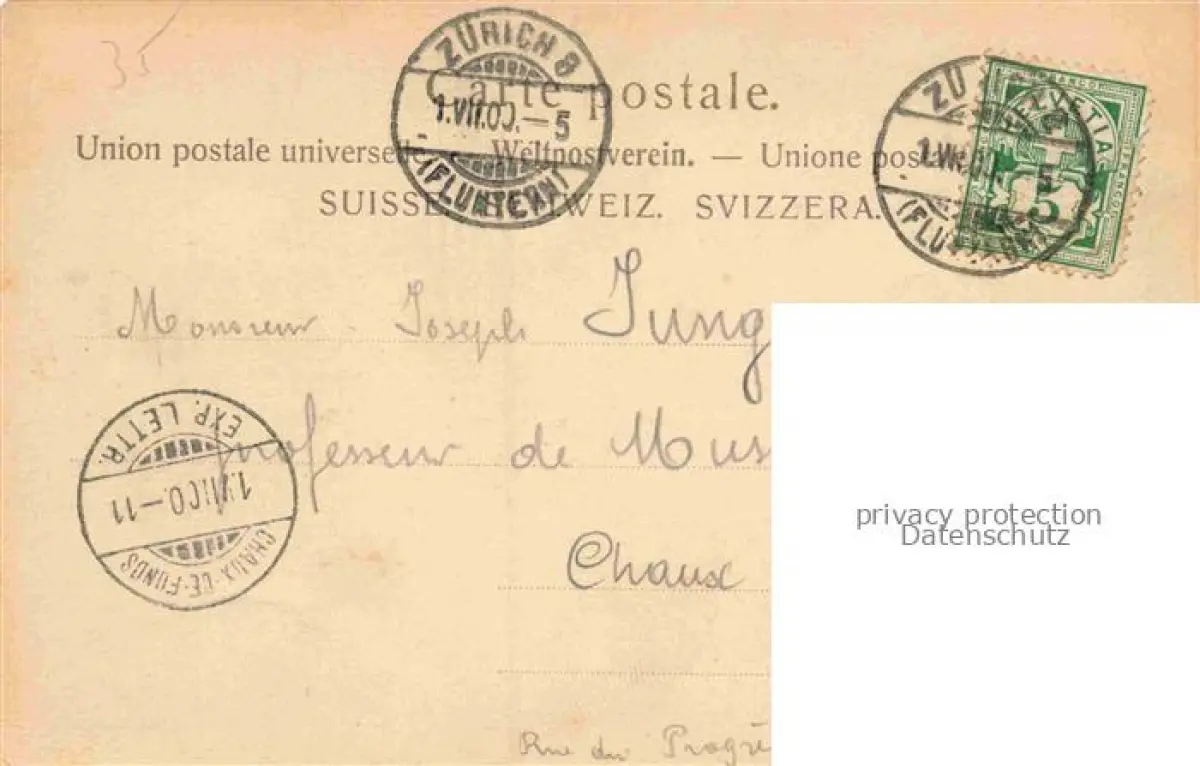 35
ZÜRICH 8
1.VII.00.–5
(FLUNTERN)
Carte postale.
Union postale universe — Weltpostverein. — Unione postale
SUISSE. WEIZ. SVIZZERA.
ZÜ
1.VII.0
(FLU
FRANCO
HELVETIA
FRANCO
5
Monsieur Joseph Jung
Professeur de Mus
Chaux
Rue du Progrè
EXP. LETTR.
1.VII.00.–11
CHAUX-DE-FONDS
privacy protection
Datenschutz